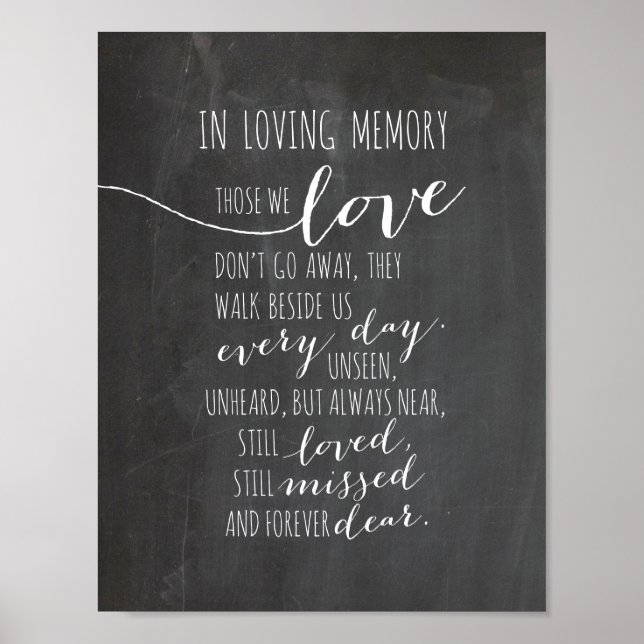 IN LOVING MEMORY
THOSE WE love
DON'T GO AWAY, THEY
WALK BESIDE US
every day.
UNSEEN,
UNHEARD, BUT ALWAYS NEAR,
STILL loved,
STILL missed
AND FOREVER dear.